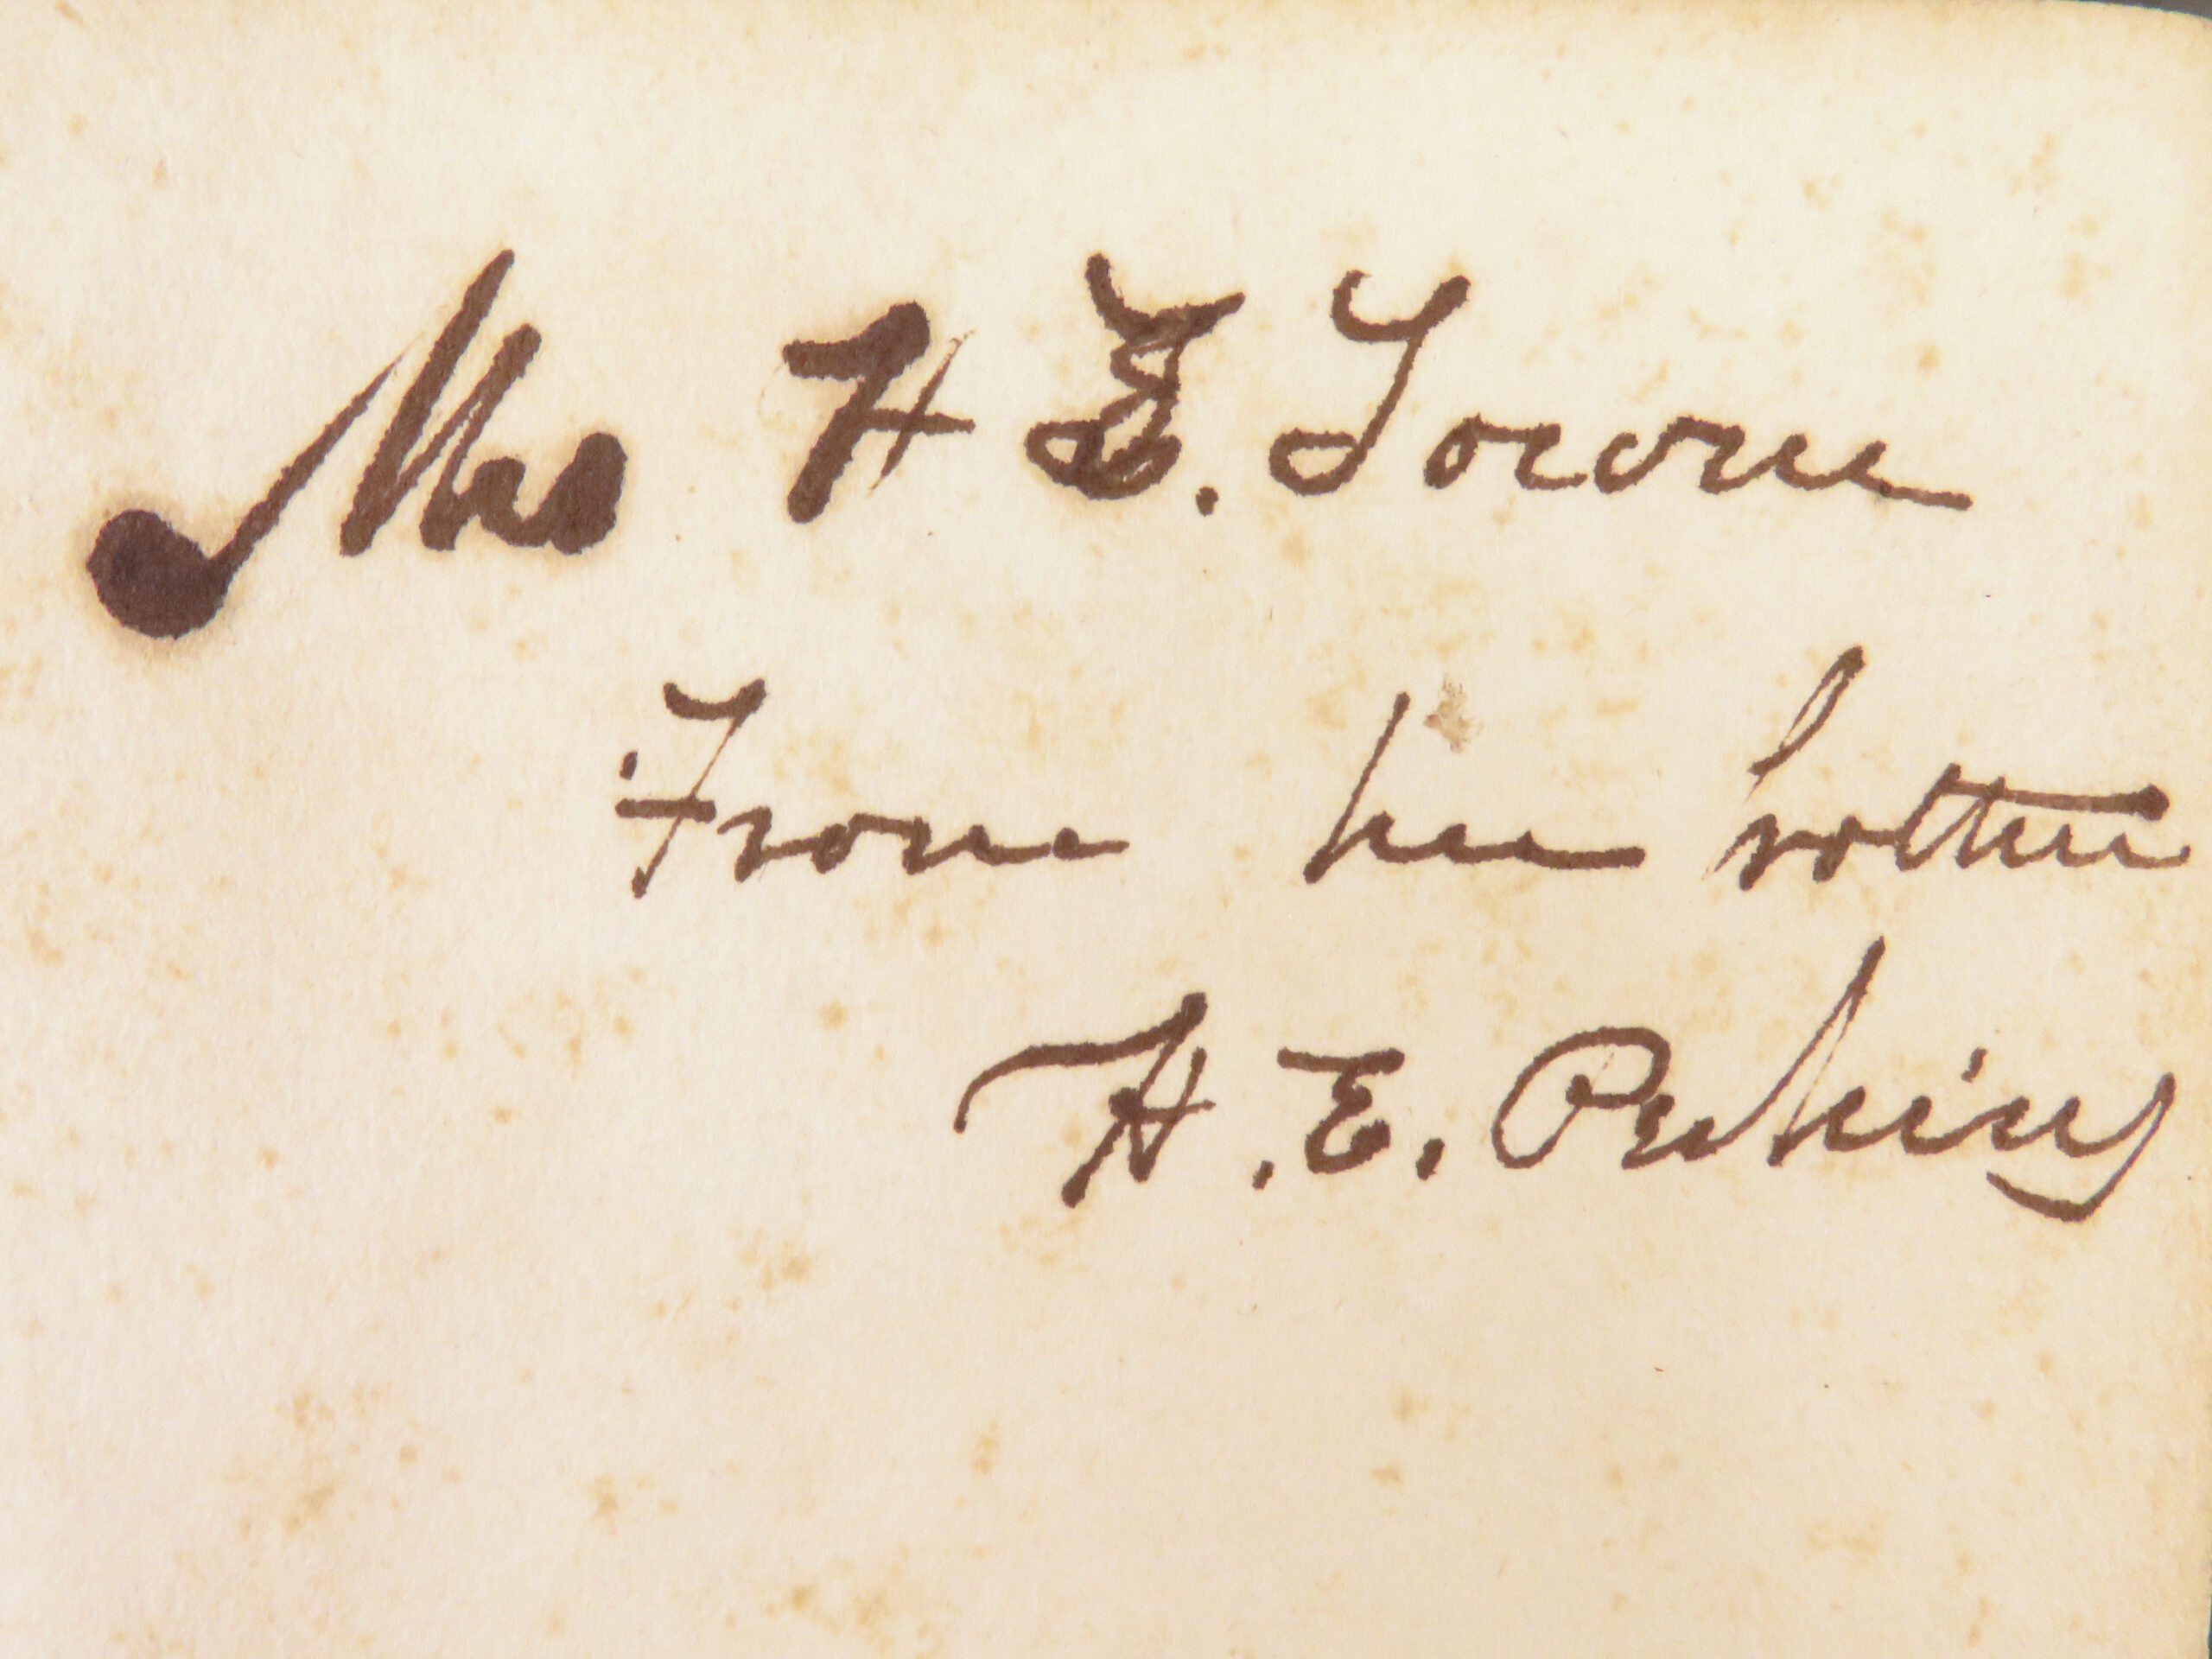 Mrs H E. Towne
From her brother
H. E. Perkins